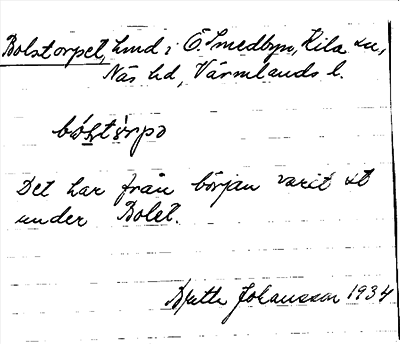 Bolstorpet, hmd i Ö Smedbyn, Kila sn,
Näs hd, Värmlands l.
Det har från början varit st
under Bolet.
Johansson 1934